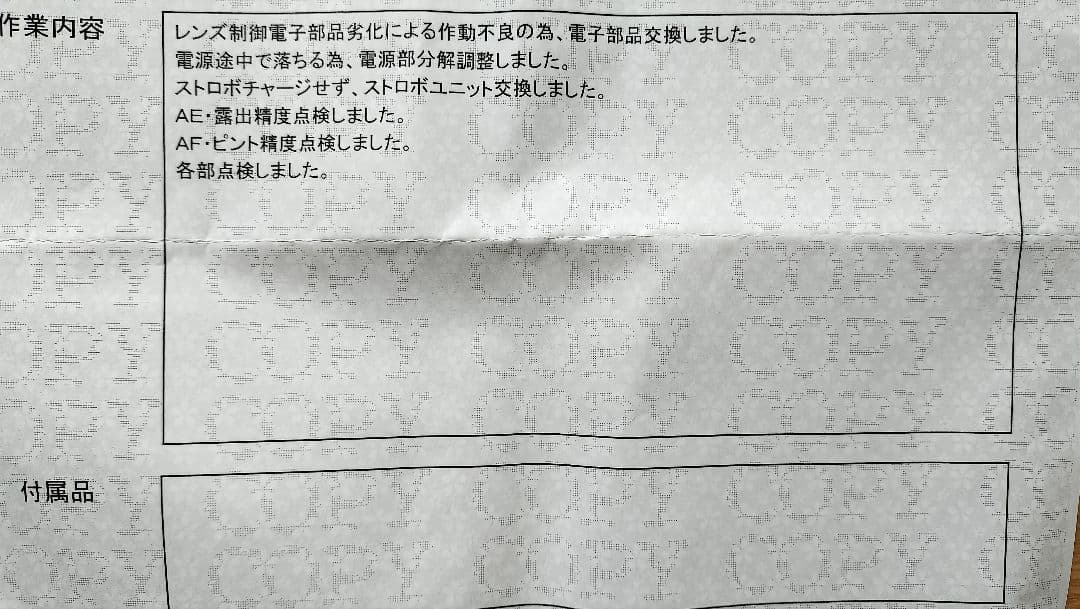 作業内容
レンズ制御電子部品劣化による作動不良の為、電子部品交換しました。
電源途中で落ちる為、電源部分解調整しました。
ストロボチャージせず、ストロボユニット交換しました。
AE・露出精度点検しました。
AF・ピント精度点検しました。
各部点検しました。
COPY COPY COPY
COPY COPY COPY
COPY COPY COPY
COPY COPY COPY
COPY COPY COPY
付属品
COPY COPY COPY
COPY COPY COPY